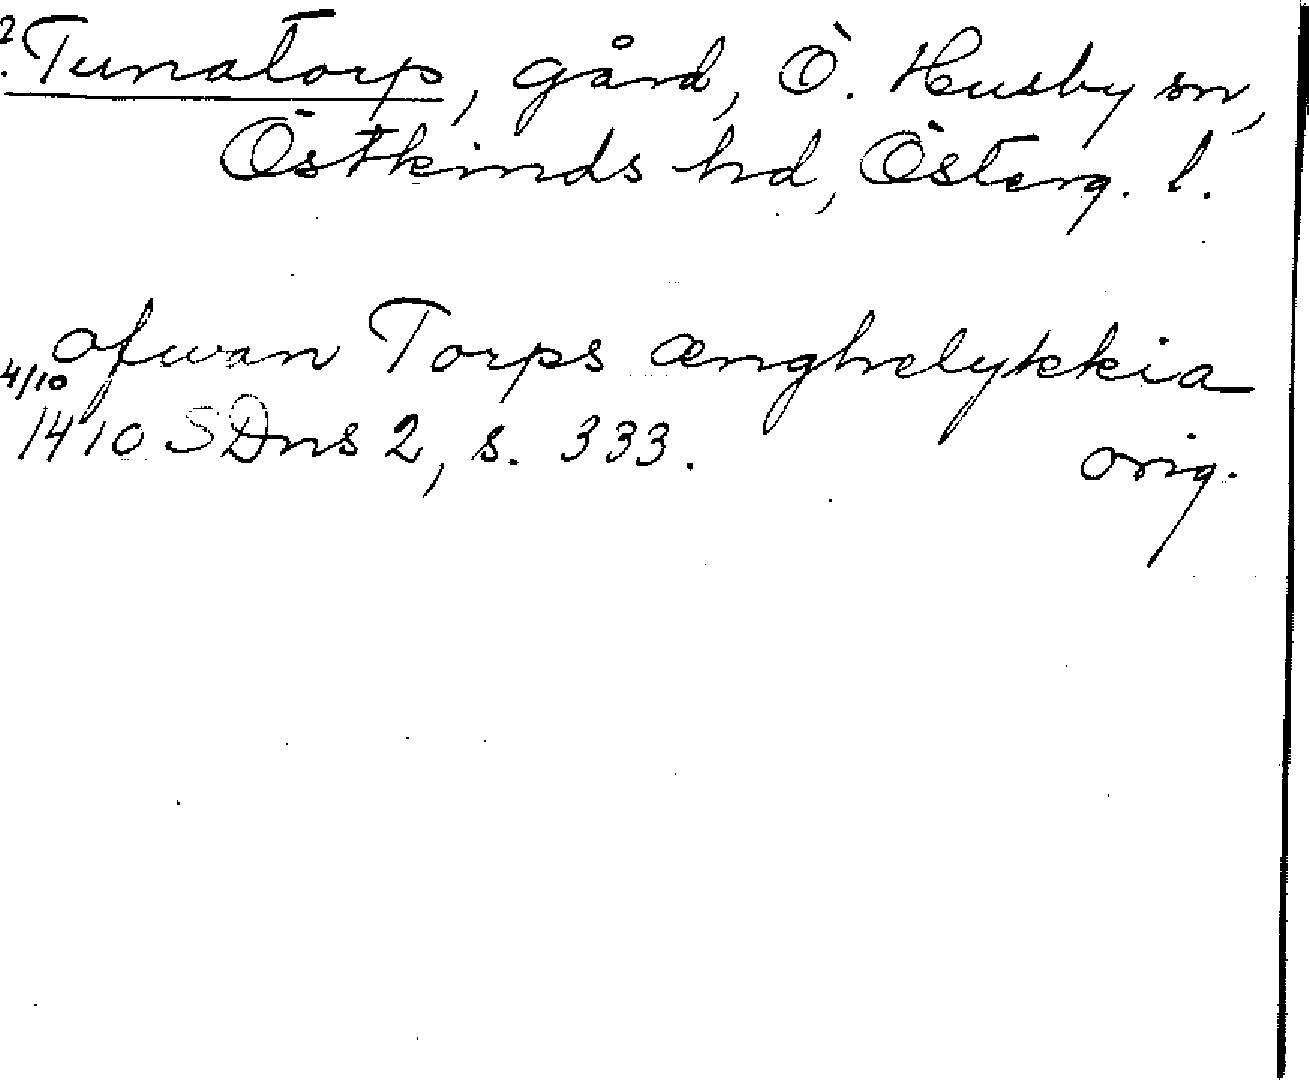 ? Tunatorp, gård, Ö. Husby sn,
Östkinds hd, Österg. l.
ofwan Torps ænghelykkia
4/10
1410 SDns 2, s. 333. orig.